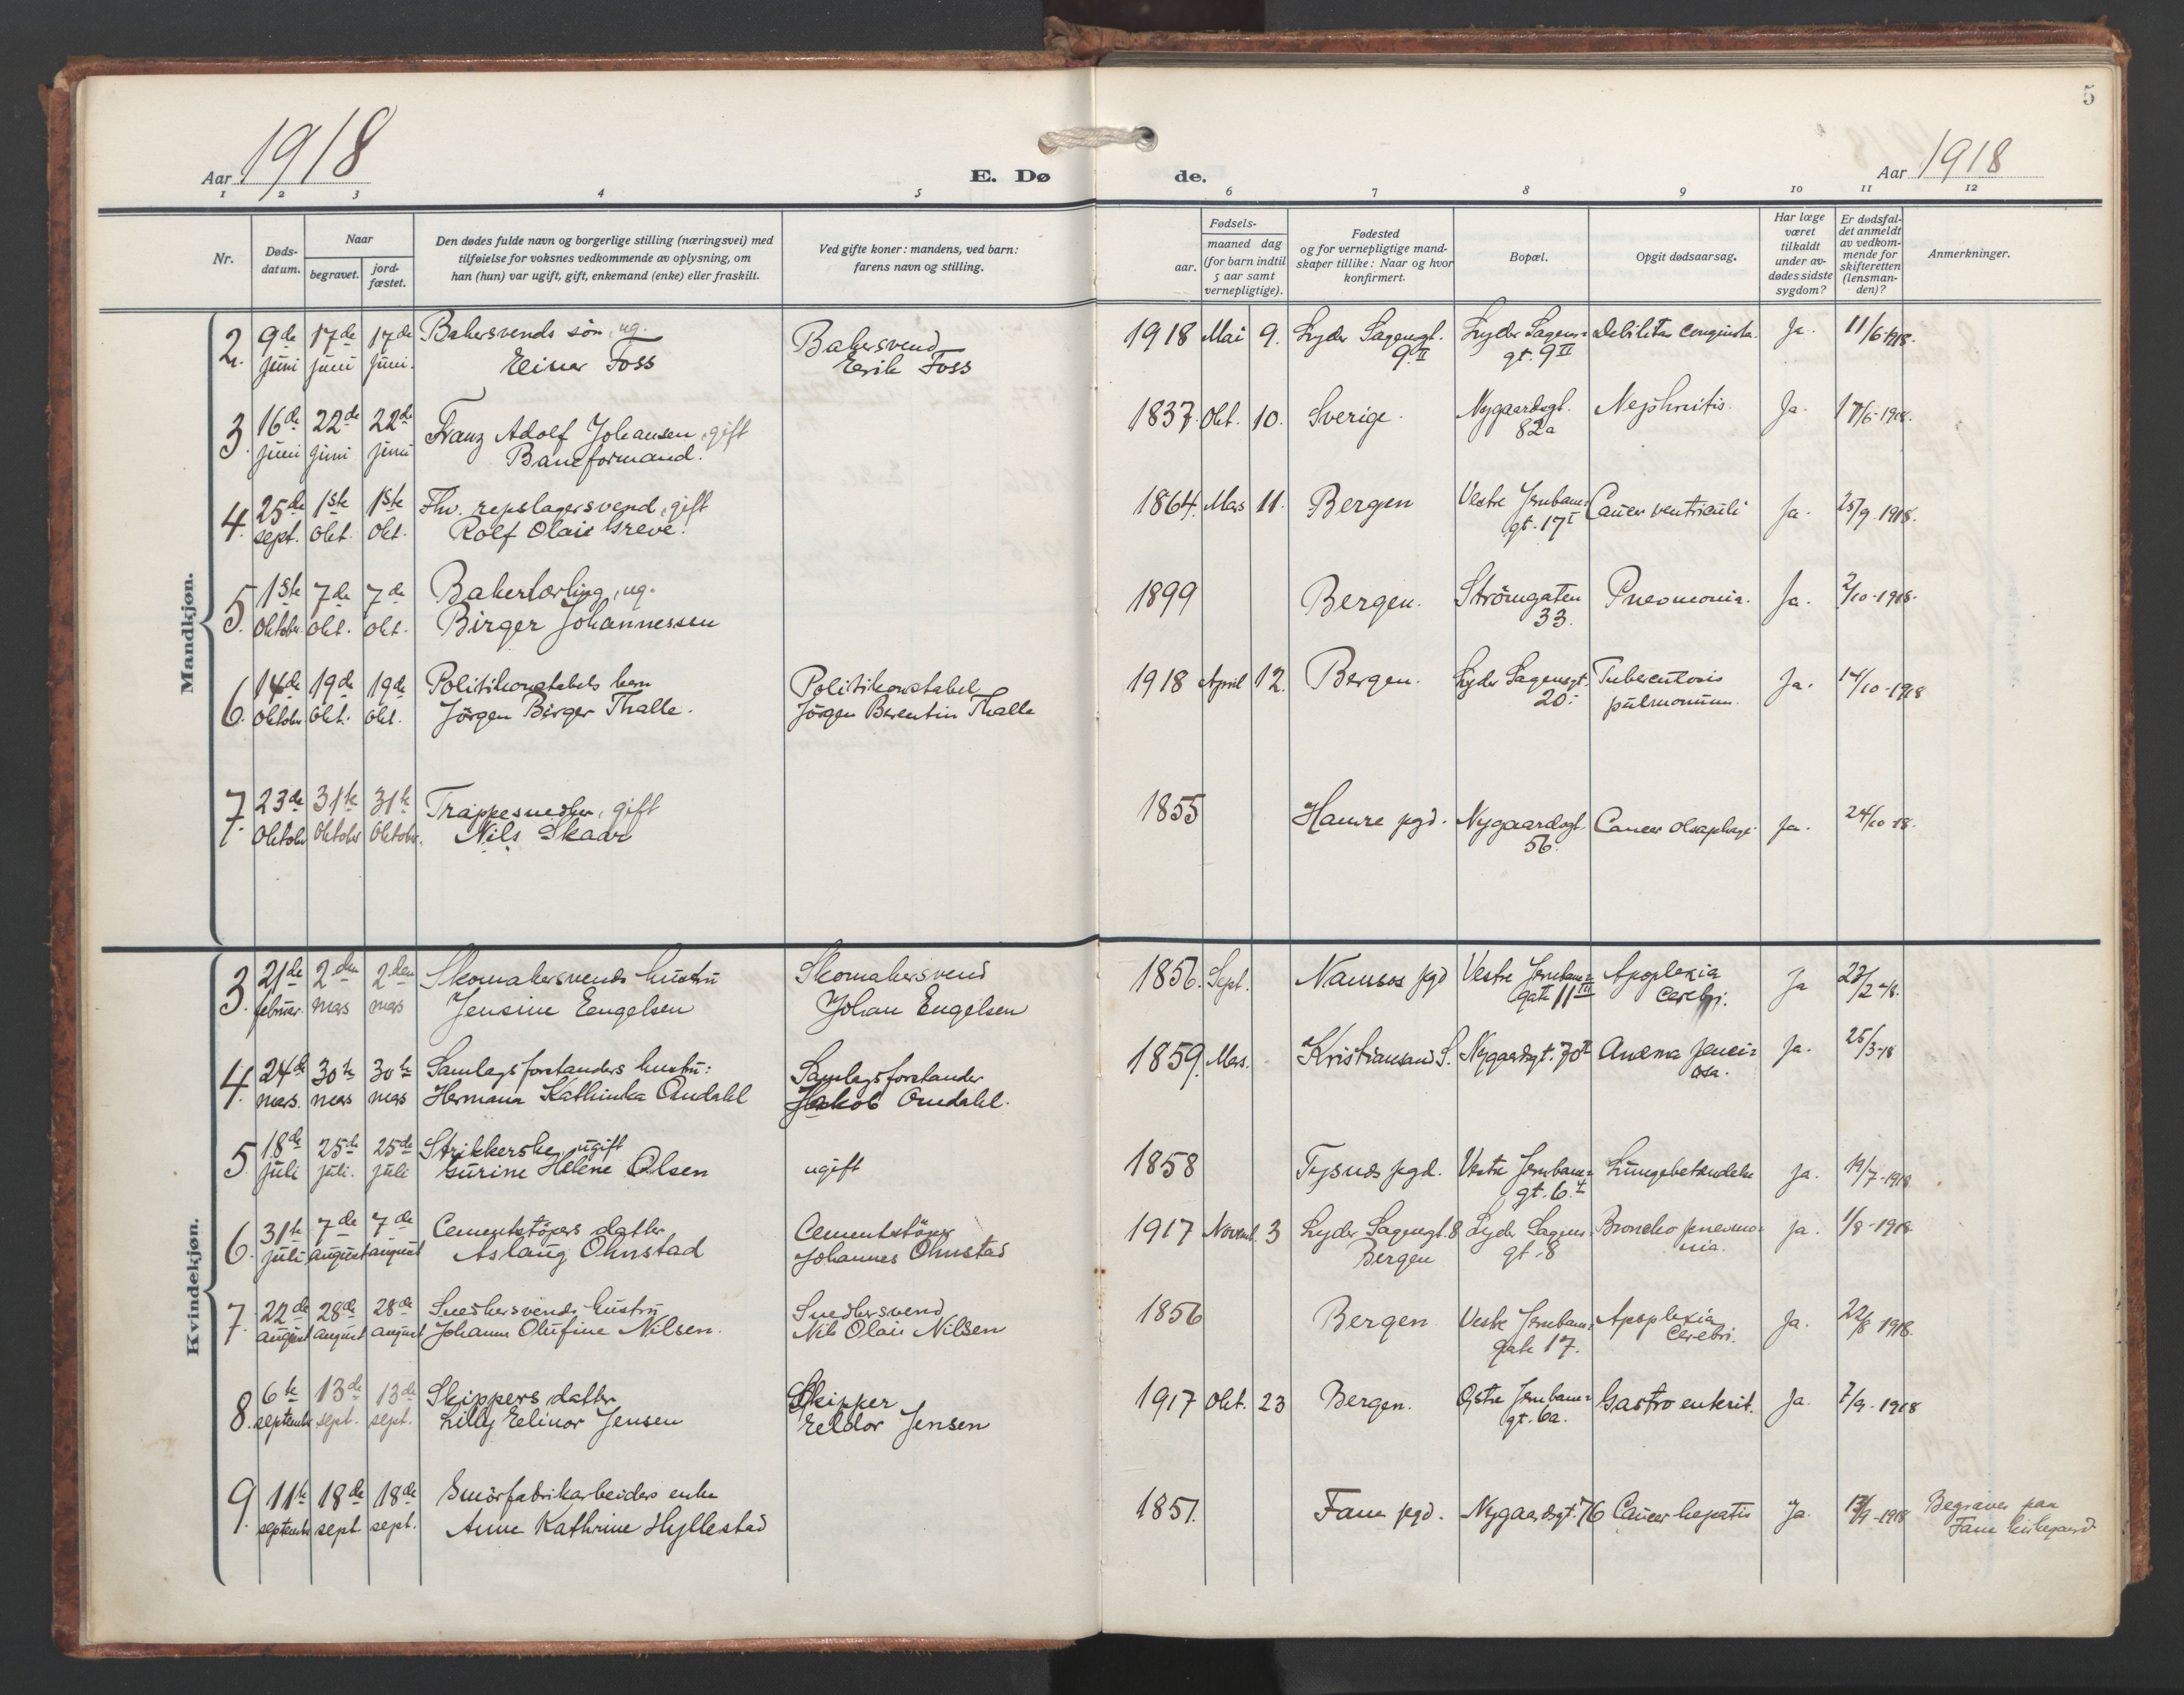 5
Aar 1918
E. Dø
de.
Aar 1918
1 2 3 4 5 6 7 8 9 10 11 12
Nr.
Døds-
datum.
Naar
begravet.
jord-
fæstet.
Den dødes fulde navn og borgerlige stilling (næringsvei) med
tilføielse for voksnes vedkommende av oplysning, om
han (hun) var ugift, gift, enkemand (enke) eller fraskilt.
Ved gifte koner: mandens, ved barn:
farens navn og stilling.
Fødsels-
aar.
maaned dag
(for barn indtil
5 aar samt
vernepligtige).
Fødested
og for vernepligtige mand-
skaper tillike: Naar og hvor
konfirmert.
Bopæl.
Opgit dødsaarsag.
Har læge
været
tilkaldt
under av-
dødes sidste
sygdom?
Er dødsfal-
det anmeldt
av vedkom-
mende for
skifteretten
(lensman-
den)?
Anmerkninger.
Mandkjøn.
2. 9de 17de 17de Bakersvends søn, ug. Bakersvend 1918 Mai 9. Lyder Sagensgt. Lyder Sagens- Debilitas congenita. Ja. 11/6 1918.
juni juni juni. Einar Foss Erik Foss 9 II gt. 9 II
3. 16de 22de 22de Franz Adolf Johansen, gift 1837. Okt. 10. Sverige. Nygaardsgt. Nephritis. Ja. 17/6-1918.
juni juni juni Baneformand. 82a
4. 25de 1ste 1ste Fhv. repslagersvend, gift 1864. Mars 11. Bergen Vestre Jernbane- Cancer ventriculi Ja. 25/9-1918.
sept. Okt. Okt. Rolf Olai Greve. gt. 17 I
5. 1ste 7de 7de Bakerlærling, ug. 1899 Bergen. Strømgaten Pneomonia. Ja. 2/10-1918.
Oktober. Okt. Okt. Birger Johannessen 33.
6. 14de 19de 19de Politikonstabels barn Politikonstabel 1918 April 12. Bergen. Lyder Sagensgt. Tuberculosis Ja. 14/10-1918
Oktober Okt. Okt. Jörgen Birger Thalle. Jörgen Berentin Thalle 20. pulmonum.
7. 23de 31te 31te Trappesnedker, gift 1855 Hamre pgd. Nygaardsgt. Cancer Ja. 24/10-18.
Oktober Oktober Oktober. Nils Skaar 56.
Kvindekjøn.
3. 21de 2den 2den Skomakersvends hustru Skomakersvend 1856. Sept. Namsos pgd Vestre Jernbane- Apoplexia Ja
februar. mars mars Jensine Eengelsen Johan Engelsen gate 11 III Cerebri.
4. 24de 30te 30te Samlagsforstanders hustru: Samlagsforstander 1859. Mars. Kristiansand S. Nygaardsgt. 70 II Anæma penici- Ja. 25/3-18
mars. mars mars Hermana Kathinka Omdahl Jakob Omdahl. osa.
5. 18de 25de 25de Strikkerske, ugift ugift 1858 Tysnes pgd. Vestre Jernbane- Lungebetændelse Ja. 19/7-1918
juli juli. juli Gurine Helene Olsen gt. 6.
6. 31te 7de 7de Cementstøpers datter Cementstøper 1917 Novemb. 3 Lyder Sagensgt. 8 Lyder Sagens- Broncho pneumo- Ja. 1/8-1918
juli august august Aslaug Ohnstad Johannes Ohnstad Bergen gt. 8 nia.
7. 22de 28de 28de Snedkersvends hustru Snedkersvend 1856 Bergen Vestre Jernbane- Apoplexia Ja. 22/8 1918.
august august august Johanne Olufine Nilsen. Nils Olai Nilsen gate 17. Cerebri.
8. 6te 13de 13de Skippers datter Skipper 1917 Okt. 23 Bergen. Østre Jernbane- Gastro enterit. Ja. 7/9-1918
september sept. sept. Lilly Elinor Jensen Eldor Jensen gt. 6a.
9. 11te 18de 18de Smörfabrikarbeiders enke 1851. Fane pgd. Nygaardsgt. 76 Cancer hepatis Ja. 12/9-1918 Begraves paa
september sept sept. Anne Kathrine Hyllestad Fane kirkegaard